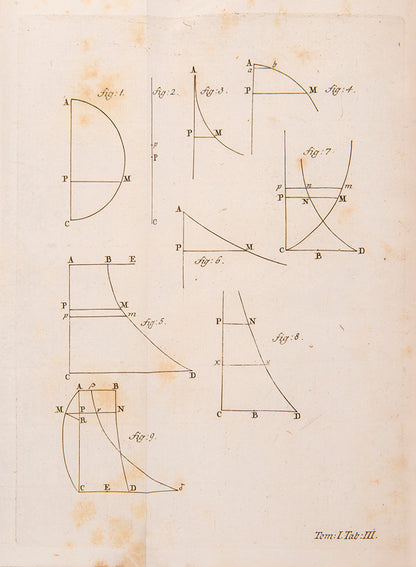 A
fig: 1.
P
M
C
fig: 2.
p
P
C
A
fig: 3.
P
M
A
a
b
P
M
fig: 4.
fig: 7
p
n
m
P
N
M
C
B
D
A
P
M
fig: 6.
A
B
E
P
M
p
m
fig: 5.
C
D
P
N
fig: 8.
C
B
D
A
B
M
P
r
N
R
fig: 9
C
E
D
Tom: I. Tab: III.